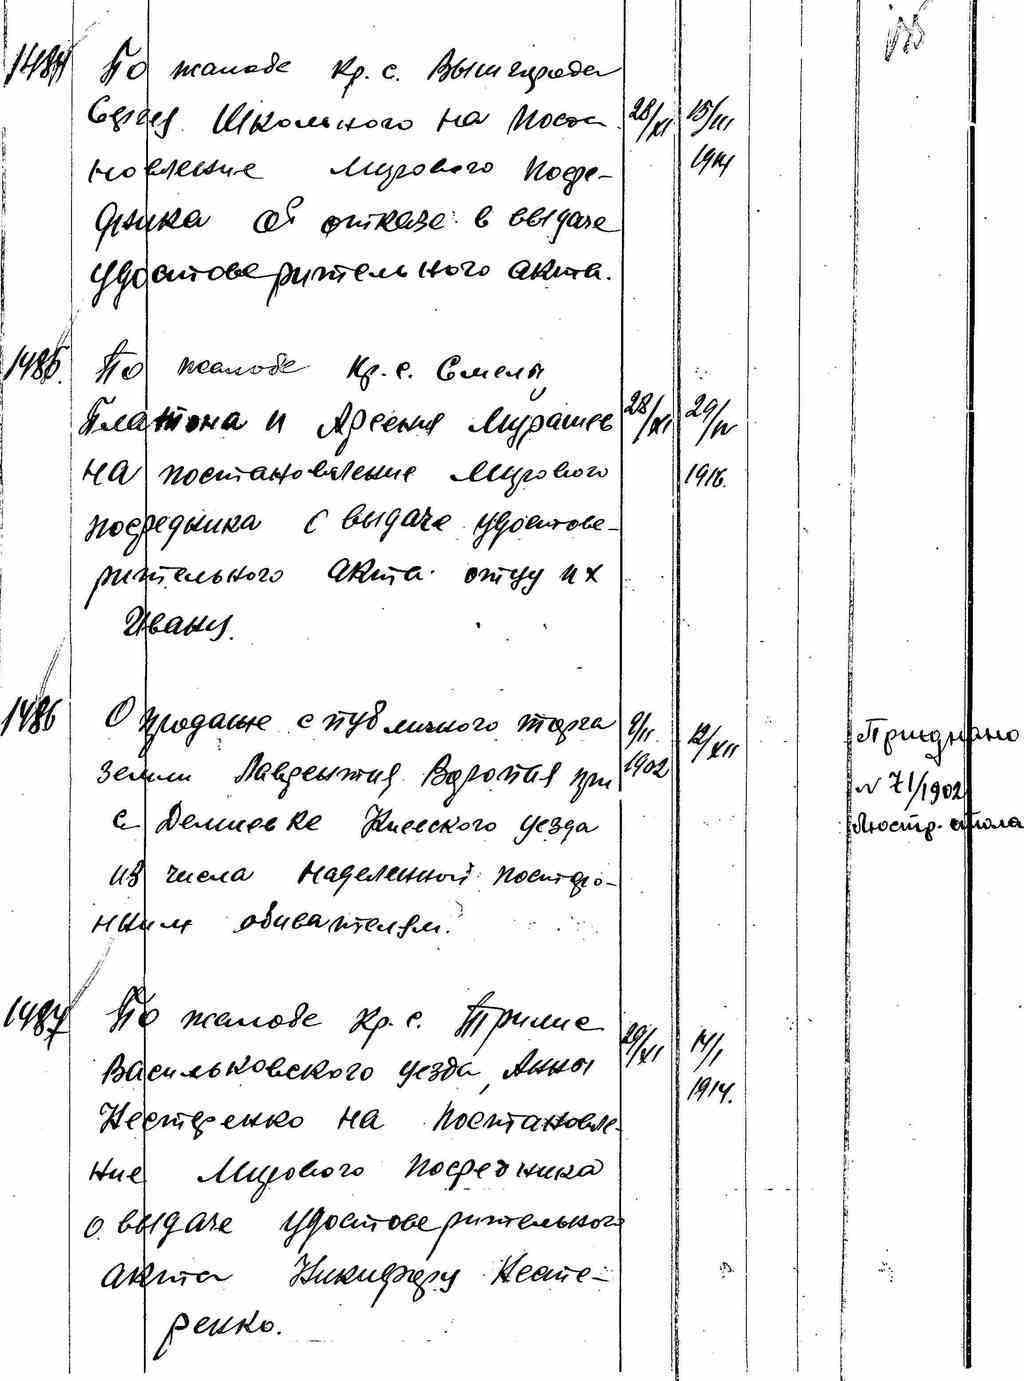 1484 По жалобе кр. с. Вышгорода
Сергея Школьного на поста
28/XI 15/III
новление Мирового Посре-
1914
дника об отказе в выдаче
удостоверительного акта.
1485. По жалобе кр. с. Смелы
Платона и Арсения Мурашев
28/XI 29/IV
на постановление Мирового
1916.
посредника о выдаче удостове-
рительного акта отцу их
Ивану.
1486 О продаже с публичного торга
9/II 12/XII
Приеднано
земли Лаврентия Воропая при
1902
N 71/1902
с. Демиевке Киевского уезда
Люстр. стола
из числа наделенной посторо-
нним обивателям.
1487 По жалобе кр. с. Трилис
29/XI 14/I
Васильковского уезда, Анны
1914.
Нестеренко на постановле-
ние Мирового Посредника
о выдаче удостоверительного
акта Никифору Несте-
ренко.